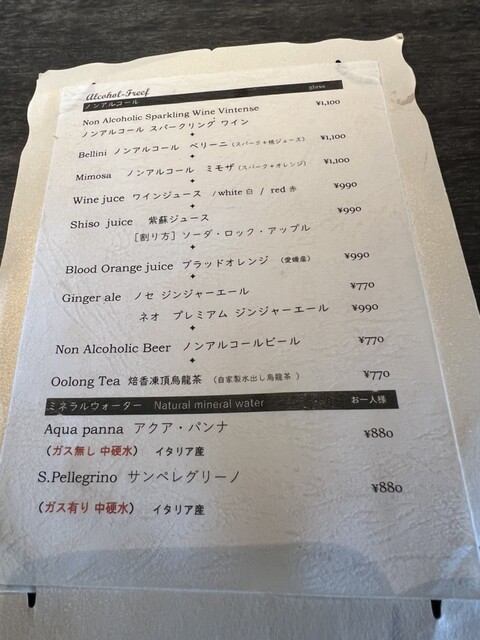 Alcohol-Freef
ノンアルコール glass
Non Alcoholic Sparkling Wine Vintense ¥1,100
ノンアルコール スパークリング ワイン
Bellini ノンアルコール ベリーニ (スパーク+桃ジュース) ¥1,100
Mimosa ノンアルコール ミモザ (スパーク+オレンジ) ¥1,100
Wine juce ワインジュース /white 白 / red 赤 ¥990
Shiso juice 紫蘇ジュース ¥990
[割り方] ソーダ・ロック・アップル
Blood Orange juice ブラッドオレンジ (愛媛産) ¥990
Ginger ale ノセ ジンジャーエール ¥770
ネオ プレミアム ジンジャーエール ¥990
Non Alcoholic Beer ノンアルコールビール ¥770
Oolong Tea 焙香凍頂烏龍茶 (自家製水出し烏龍茶) ¥770
ミネラルウォーター Natural mineral water お一人様
Aqua panna アクア・パンナ ¥880
(ガス無し 中硬水) イタリア産
S.Pellegrino サンペレグリーノ ¥880
(ガス有り 中硬水) イタリア産